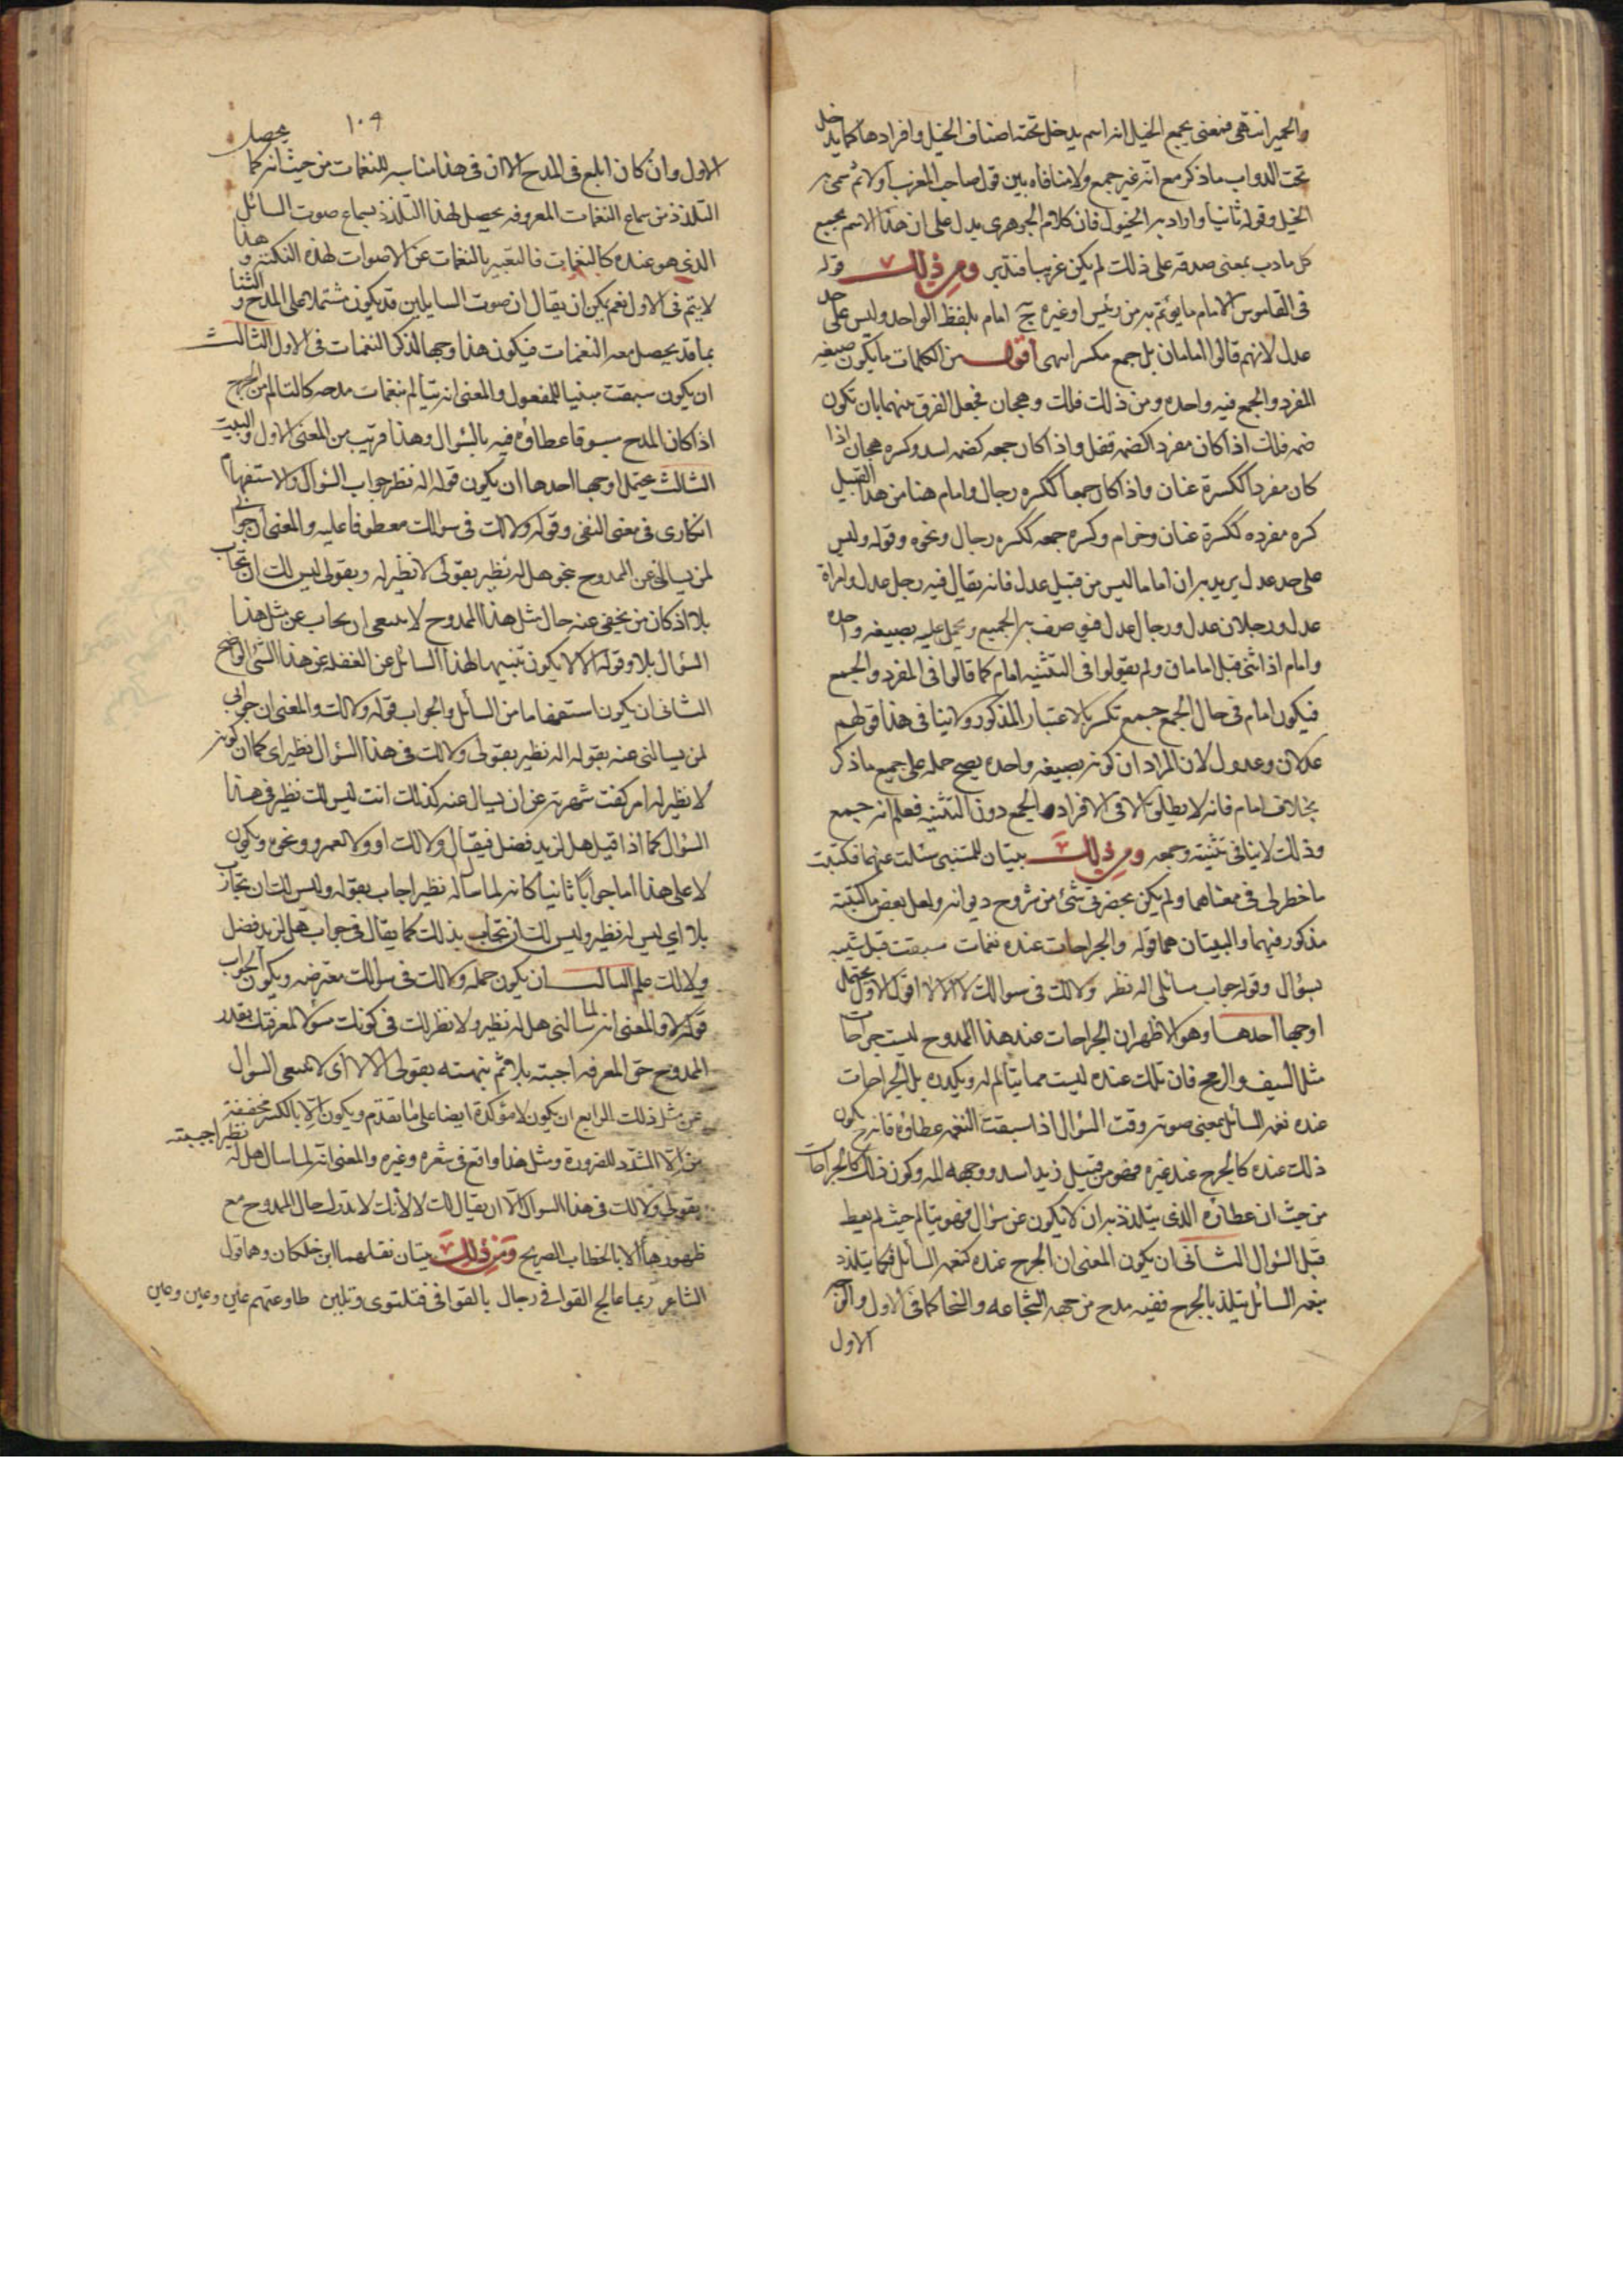 والحمير انتهى فمعنى يجمع الخيل انه اسم يدخل تحته اصناف الخيل وافرادها كما يدخل
تحت الدواب ما ذكر مع انه غير جمع ولا منافاه بين قول صاحب المغرب اولا ثم سمى به
الخيل وقوله ثانيا واراد به الخيول فان كلام الجوهرى يدل على ان هذا الاسم بجميع
كل ما دب بمعنى صدقه على ذلك لم يكن غريبا فتدبر ومن ذلك قوله
فى القاموس الامام ما يؤتم به من رئيس او غيره ج امام بلفظ الواحد وليس على حد
عدل لانهم قالوا امامان بل جمع مكسر انتهى اقول من الكلمات ما يكون صيغه
المفرد والجمع فيه واحده ومن ذلك فلك وهجان فجعل الفرق بينهما بان تكون
ضمه فلك اذا كان مفردا كضمه قفل واذا كان جمعه كضمه اسد وكسره هجان اذا
كان مفردا ككسرة عنان واذا كان جمعا ككسره رجال وامام هنا من هذا القبيل
كسره مفرده ككسرة عنان وحزام وكسره جمعه ككسره رجال ونحوه وقوله وليس
على حد عدل يريد به ان اماما ليس من قبيل عدل فانه يقال فيه رجل عدل وامراة
عدل ورجلان عدل ورجال عدل فهو صرف به الجميع ويحمل عليه بصيغه واحده
وامام اذا اثنى قيل امامان ولم يقولوا فى التثنيه امام كما قالوا فى المفرد والجمع
فيكون امام فى حال الجمع جمع تكسير بالاعتبار المذكور ولا ينافى هذا قولهم
عدلان وعدول لان المراد ان كونه بصيغه واحده يصح حمله على جميع ما ذكر
بخلاف امام فانه لا يطلق الا فى الافراد والجمع دون التثنيه فعلم انه جمع
وذلك لا ينافى تثنيته وجمعه ومن ذلك بيتان للمتنبى سئلت عنهما فكتبت
ما خطر لى فى معناهما ولم يكن بحضرتى شئ من شروح ديوانه ولعل بعض ما كتبته
مذكور فيهما والبيتان هما قوله والجراحات عنده نغمات سبقت قبل سيبه
بسؤال وقوله جواب مسائلى اله نظير ولا لك فى سوالك لا الا لا اقول الاول يحتمل
اوجها احدها وهو الاظهر ان الجراحات عند هذا الممدوح ليست جراحات
مثل السيف والرمح فان تلك عنده ليست مما يتالم له ويكيده بل الجراحات
عنده نغمه السائل بمعنى صوته وقت السؤال اذا سبقت النغمه عطاؤه فانه يكون
ذلك عنده كالجرح عند غيره فهو من قبيل زيد اسد ووجهه المه وكون ذلك كالجراحات
من حيث ان عطاؤه الذى يتلذذ به ان لا يكون عن سؤال فهو يتالم حيث لم يعط
قبل السؤال الثانى ان يكون المعنى ان الجرح عنده كنغمه السائل فكما يتلذذ
بنغمه السائل يتلذذ بالجرح ففيه مدح من جهه الشجاعه والسخا كما فى الاول
الاول
١٠٩
الاول وان كان ابلغ فى المدح الا ان فى هذا مناسبه للنغمات من حيث انه كما يحصل
التلذذ من سماع النغمات المعروفه يحصل لهذا التلذذ بسماع صوت السائل
الذى هو عنده كالنغمات فالتعبير بالنغمات عن الاصوات لهذه النكته وهذا
لا يتم فى الاول نعم يمكن ان يقال ان صوت السايلين قد يكون مشتملا على المدح والثنا
بما قد يحصل معه النغمات فيكون هذا وجها لذكر النغمات فى الاول الثالث
ان يكون سبقت مبنيا للمفعول والمعنى انه يتالم بنغمات مدحه كالتالم من الجرح
اذا كان المدح مسبوقا عطاؤه فيه بالسؤال وهذا قريب من المعنى الاول والبيت
الثالث يحتمل اوجها احدها ان يكون قوله اله نظير جواب السؤال والاستفهام
انكارى فى معنى النفى وقوله ولا لك فى سوالك معطوفا عليه والمعنى ان جوابى
لمن يسالنى عن الممدوح بنحو هل له نظير بقولى لا نظير له وبقولى ليس لك ان تجاب
بلا اذ كان من يخفى عنه حال مثل هذا الممدوح لا ينبغى ان يجاب عن مثل هذا
السؤال بلا وقوله الا لا يكون تنبيها لهذا السائل عن الغفله عن هذا الشئ الواضح
الثانى ان يكون استفهاما من السائل والجواب قوله ولا لك والمعنى ان جوابى
لمن يسالنى عنه بقوله اله نظير بقولى ولا لك فى هذا السؤال نظير اى كما ان كونه
لا نظير له امر كفت شهرته عن ان يسال عنه كذلك انت ليس لك نظير فى هذا
السؤال كما اذا قيل هل لزيد فضل فيقال ولا لك او ولا لعمرو ونحوه ويكون
لا على هذا اما جوابا ثانيا كانه لما سال اله نظير اجاب بقوله وليس لك ان تجاب
بلا اى ليس له نظير وليس لك ان تجاب بذلك كما يقال فى جواب هل لزيد فضل
ولا لك علم الثالث ان يكون جمله ولا لك فى سوالك معترضه ويكون الجواب
قوله لا والمعنى انه لما سالنى هل له نظير ولا نظير لك فى كونك مسؤلا لمعرفتك بقدر
الممدوح حق المعرفه اجبته بلا ثم نبهته بقولى الا لا اى لا ينبغى السوال
عن مثل ذلك الرابع ان يكون لا مؤكدة ايضا على ما تقدم ويكون الا بالكسر مخففة
من الا المشدد للضرورة ومثل هذا واقع فى شعره وغيره والمعنى انه لما سال هل له نظير اجبته
بقولى ولا لك فى هذا السوال الا ان يقال لك لا لانك لا تدرك حال الممدوح مع
ظهورها الا بالخطاب الصريح ومن ذلك بيتان نقلهما ابن خلكان وهما قول
الشاعر ربما عالج القوافى رجال بالقوافى فتلتوى وتلين طاوعتهم عين وعين وعين